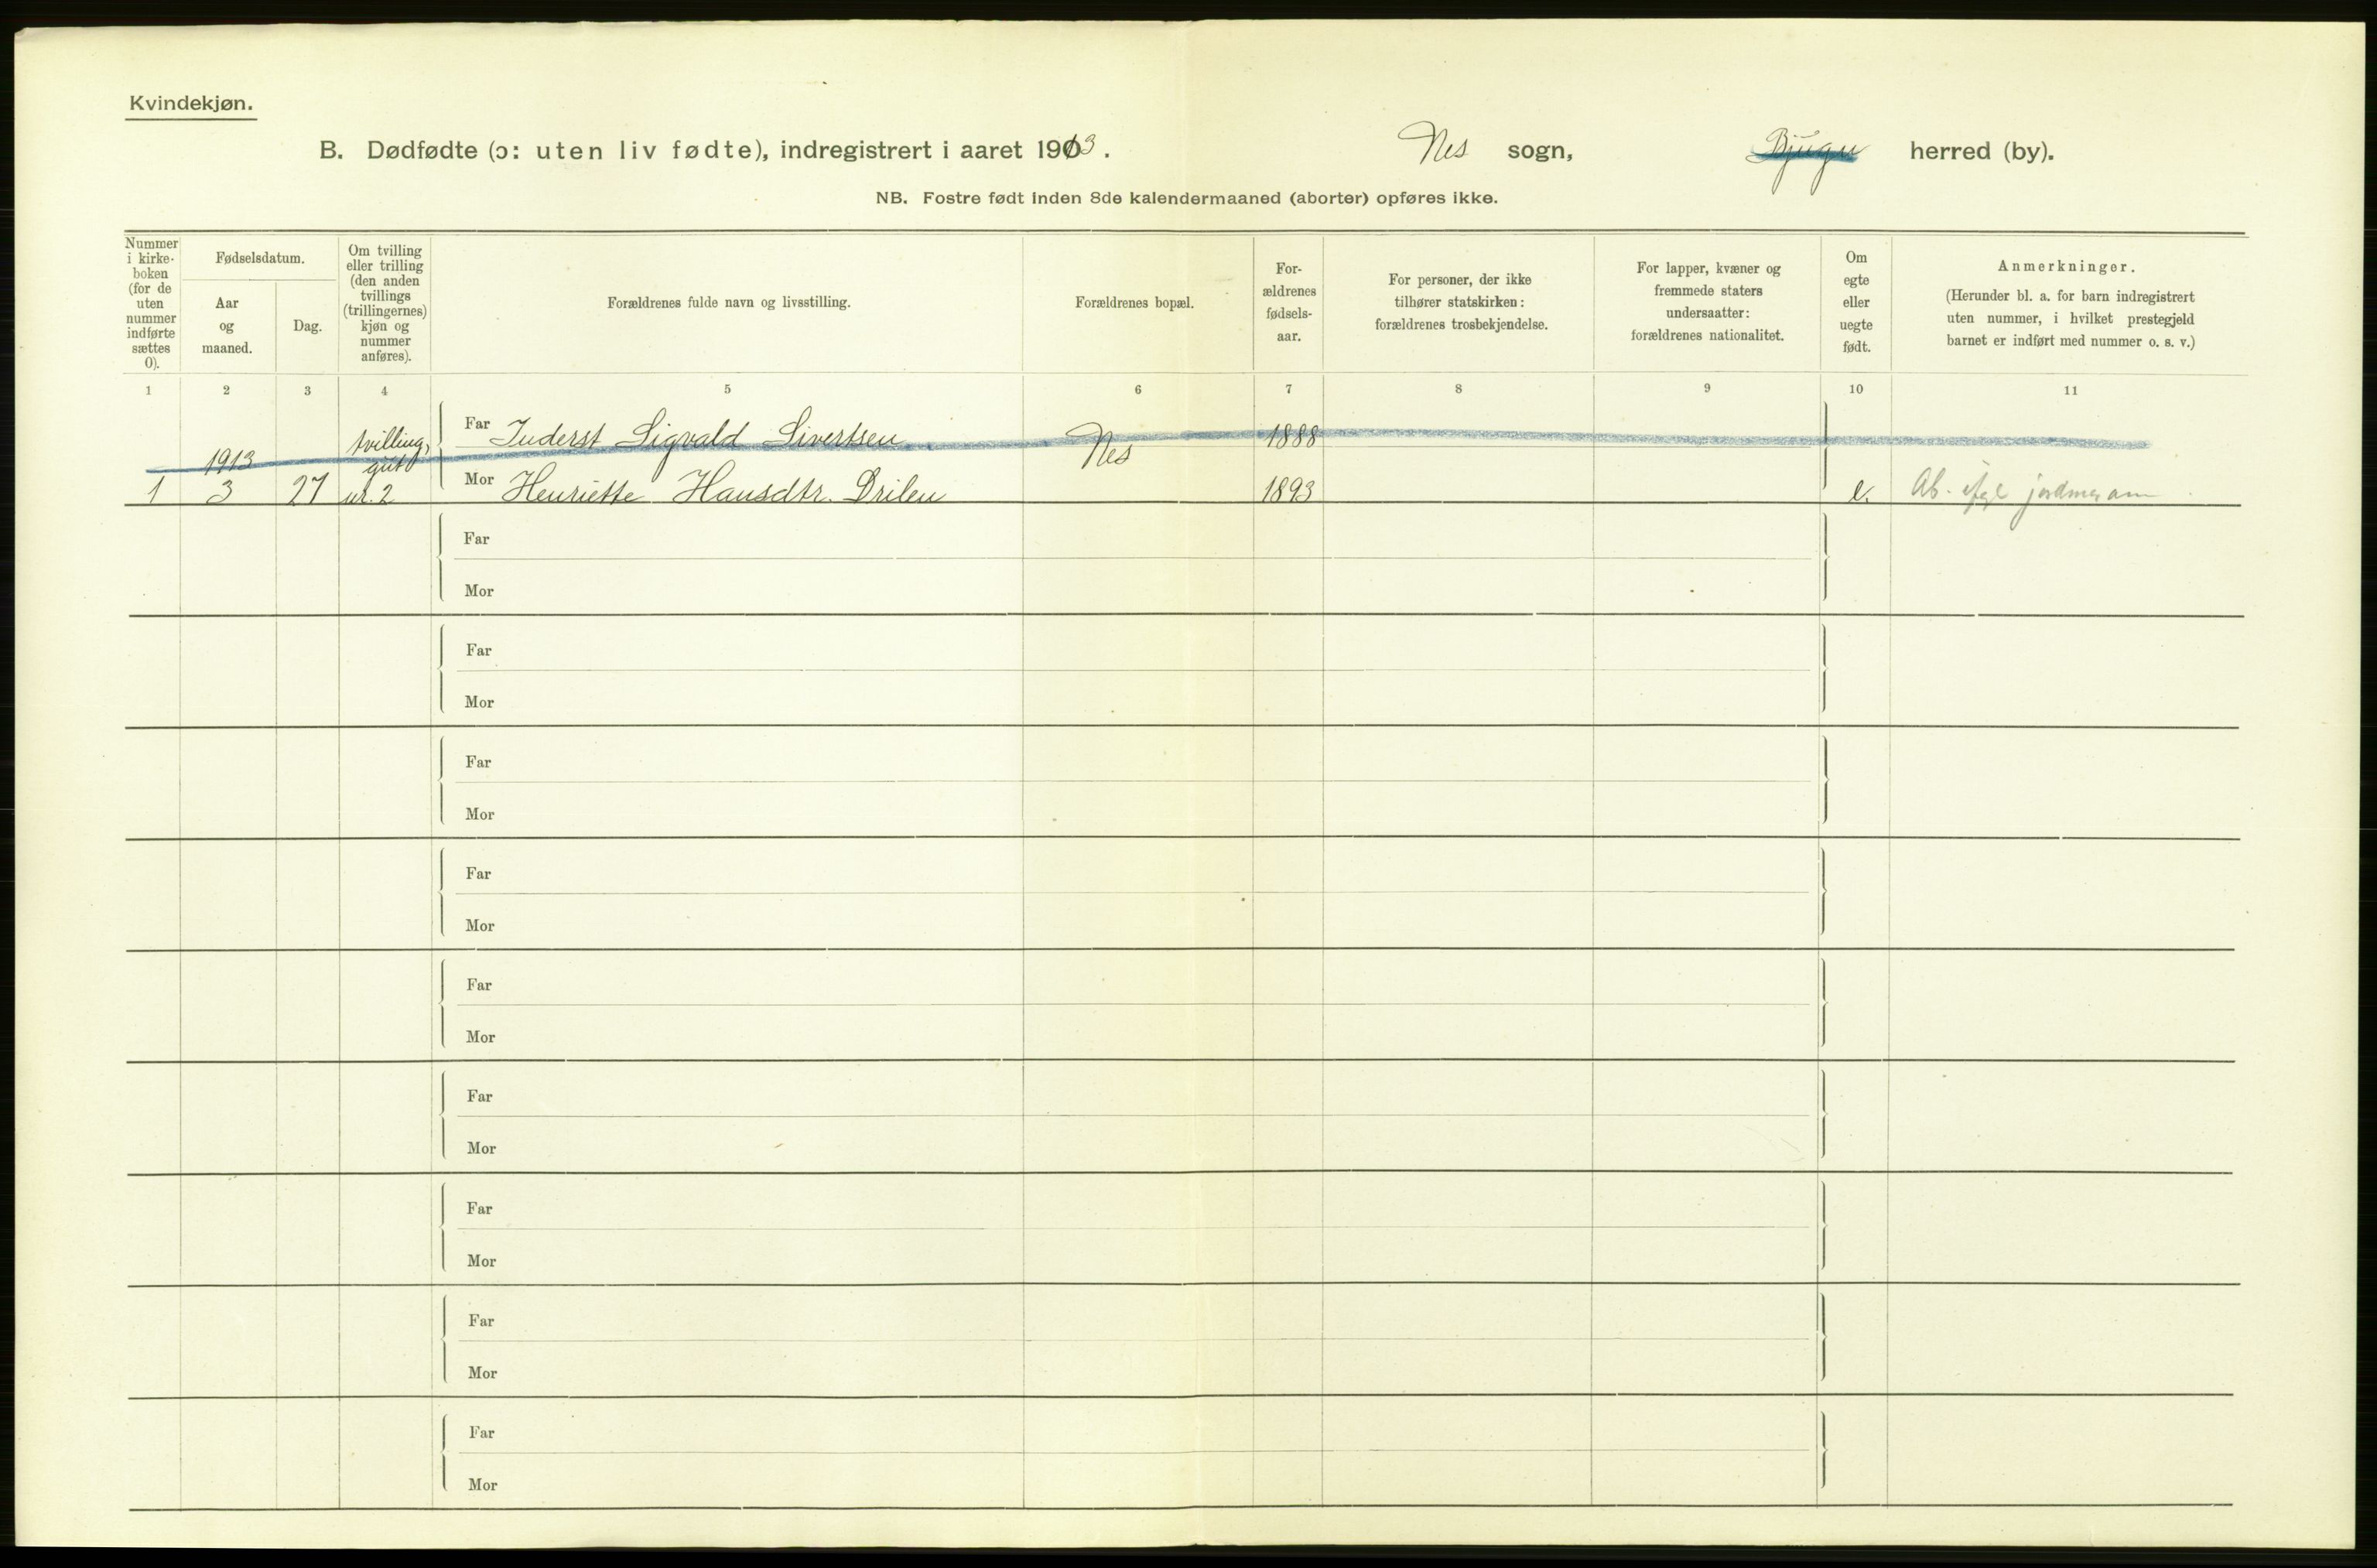 Kvindekjøn.
B. Dødfødte (ɔ: uten liv fødte), indregistrert i aaret 1913. Nes sogn, Bjugn herred (by).
NB. Fostre født inden 8de kalendermaaned (aborter) opføres ikke.
Nummer
i kirke-
boken
(for de
uten
nummer
indførte
sættes
0).
Fødselsdatum.
Aar
og
maaned.
Dag.
Om tvilling
eller trilling
(den anden
tvillings
(trillingernes)
kjøn og
nummer
anføres).
Forældrenes fulde navn og livsstilling.
Forældrenes bopæl.
For-
ældrenes
fødsels-
aar.
For personer, der ikke
tilhører statskirken:
forældrenes trosbekjendelse.
For lapper, kvæner og
fremmede staters
undersaatter:
forældrenes nationalitet.
Om
egte
eller
uegte
født.
Anmerkninger.
(Herunder bl. a. for barn indregistrert
uten nummer, i hvilket prestegjeld
barnet er indført med nummer o. s. v.)
1 2 3 4 5 6 7 8 9 10 11
tvilling, Far Inderst Sigvald Sivertsen 1888
1913 gut Nes
1 3 27 nr. 2 Mor Henriette Hansdtr. 1893 e. Ab.
Far
Mor
Far
Mor
Far
Mor
Far
Mor
Far
Mor
Far
Mor
Far
Mor
Far
Mor
Far
Mor